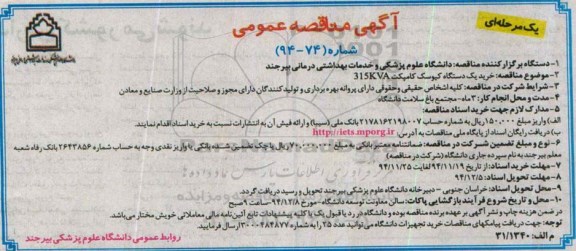 یک مرحله‌ای
آگهی مناقصه عمومی
شماره (۷۴-۹۴)
۱- دستگاه برگزار کننده مناقصه: دانشگاه علوم پزشکی و خدمات بهداشتی درمانی بیرجند
۲- موضوع مناقصه: خرید یک دستگاه کیوسک کامپکت 315KVA
۳- شرایط شرکت در مناقصه: کلیه اشخاص حقیقی و حقوقی دارای پروانه بهره برداری و تولید کنندگان دارای مجوز و صلاحیت از وزارت صنایع و معادن
۴- مدت و محل انجام کار: ۳ماه- مجتمع باغ سلامت دانشگاه
۵- مدارک لازم جهت خرید اسناد مناقصه:
الف) واریز مبلغ ۱۵۰,۰۰۰ ریال به شماره حساب ۲۱۷۸۱۶۲۱۹۸۰۰۷ بانک ملی (سیبا) و ارائه فیش آن به انتشارات نسبت به خرید اسناد اقدام نمایند.
ب) دریافت رایگان اسناد از پایگاه ملی مناقصات به آدرس: http://iets.mporg.ir
۶- نوع و مبلغ تضمین شرکت در مناقصه: ضمانتنامه معتبر بانکی به مبلغ ریال یا چک تضمین شده بانکی یا واریز نقدی وجه به حساب شماره ۲۶۴۳۸۵۶ بانک رفاه شعبه
معلم بیرجند به نام سپرده جاری دانشگاه (شرکت در مناقصه)
۷- مهلت خرید اسناد: از تاریخ ۹۴/۱۱/۱۹ لغایت ۹۴/۱۱/۲۵
۸- مهلت تحویل اسناد: ۹۴/۱۲/۵
۹- محل تحویل اسناد: خراسان جنوبی - دبیرخانه دانشگاه علوم پزشکی بیرجند تحویل و رسید دریافت گردد.
۱۰- محل و تاریخ شروع فرآیند بازگشایی پاکات: سالن معاونت توسعه دانشگاه - مورخ ۹۴/۱۲/۸ ساعت ۹ صبح
در ضمن هزینه چاپ و نشر آگهی بر عهده برنده مناقصه بوده و دانشگاه در رد یا قبول یک یا کلیه پیشنهادات تابع آئین نامه مالی معاملاتی خویش مختار می‌باشد.
جهت دریافت پیامکهای مناقصات خرید تجهیزات دانشگاه می‌توانید عدد ۲۵ را به شماره ۳۰۰۰۴۸۴۸۷۷ ارسال فرمایید.
م الف: ۳۱/۱۳۴۰
روابط عمومی دانشگاه علوم پزشکی بیرجند